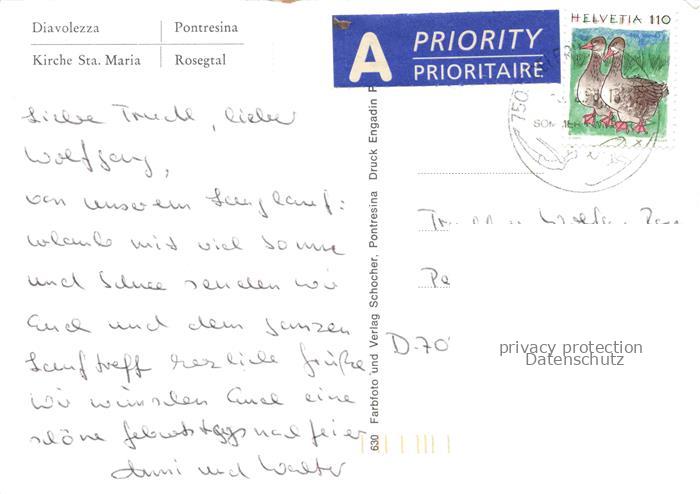 Diavolezza Pontresina
Kirche Sta. Maria Rosegtal
A PRIORITY
PRIORITAIRE
HELVETIA 110
Liebe Trudl, lieber
Wolfgang,
von unserem Langlauf:
urlaub mit viel Sonne
und Schnee senden wir
Euch und dem ganzen
Lauftreff herzliche Grüße.
Wir wünschen Euch eine
schöne Geburtstagsnachfeier
Anni und Walter
630 Farbfoto und Verlag Schocher, Pontresina Druck Engadin P
750
D-70
privacy protection
Datenschutz